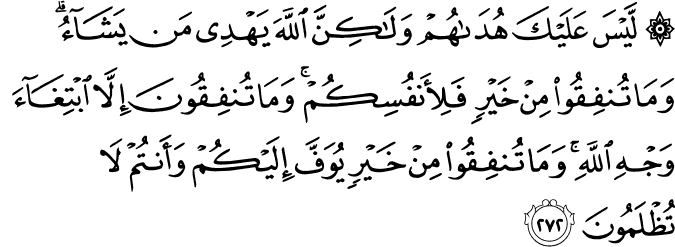 ۞ لَّيۡسَ عَلَيۡكَ هُدَىٰهُمۡ وَلَٰكِنَّ ٱللَّهَ يَهۡدِي مَن يَشَآءُۗ
وَمَا تُنفِقُواْ مِنۡ خَيۡرٖ فَلِأَنفُسِكُمۡۚ وَمَا تُنفِقُونَ إِلَّا ٱبۡتِغَآءَ
وَجۡهِ ٱللَّهِۚ وَمَا تُنفِقُواْ مِنۡ خَيۡرٖ يُوَفَّ إِلَيۡكُمۡ وَأَنتُمۡ لَا
تُظۡلَمُونَ ٢٧٢